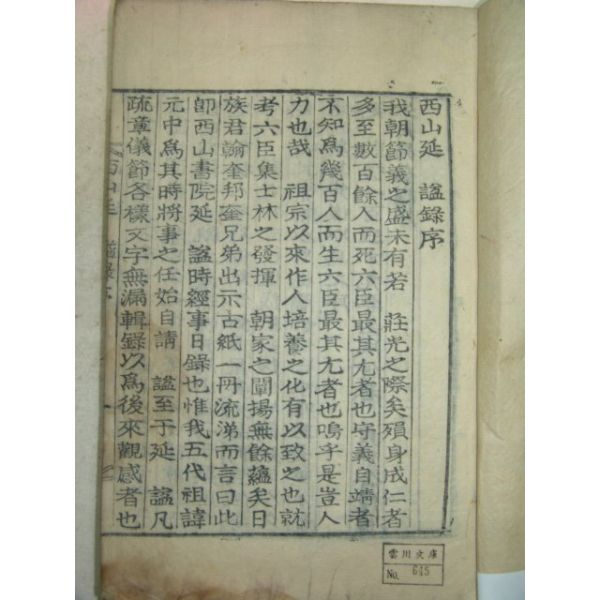 西山延　諡錄序
我朝節義之盛未有若　莊光之際矣殞身成仁者
多至數百餘人而死六臣最其尤者也守義自靖者
不知爲幾百人而生六臣最其尤者也嗚乎是豈人
力也哉　祖宗以來作人培養之化有以致之也就
考六臣集士林之發揮　朝家之闡揚無餘蘊矣日
族君翰奎邦奎兄弟出示古紙一冊流涕而言曰此
卽西山書院延　諡時經事日錄也惟我五代祖諱
元中爲其時將事之任始自請　諡至于延　諡凡
疏章儀節各樣文字無漏輯錄以爲後來觀感者也
雲川文庫
No. 645